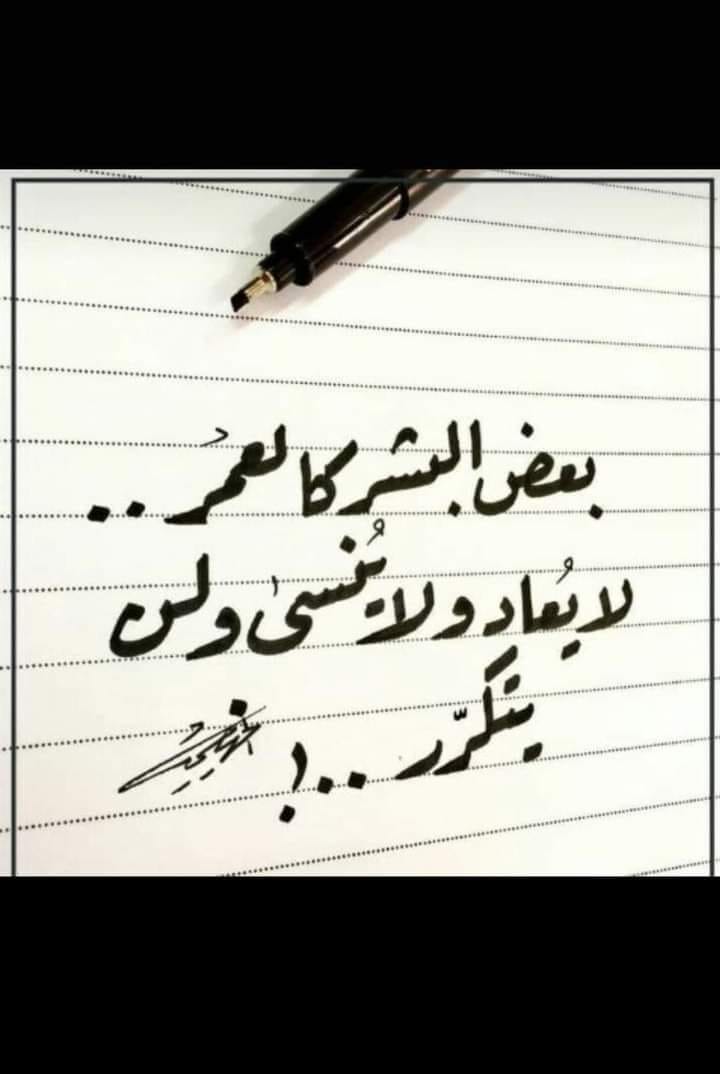 بعض البشر كالعمُر ..
لا يُعاد ولا يُنسىٰ ولن
يتكرّر ..!